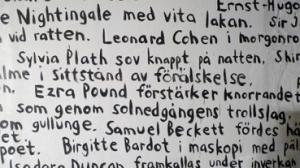 Ernst-Hugo
e Nightingale med vita lakan. Sir J
vid ratten. Leonard Cohen i morgonro
Sylvia Plath sov knappt på natten. Shir
lme i Sittstånd av förälskelse.
en. Ezra Pound förstärker knorrandet
som genom solnedgångens trollslag.
om gullunge. Samuel Beckett fördes hä
et. Brigitte Bardot i maskopi med pål
poet.
Isadora Duncan framkallas under inverkan